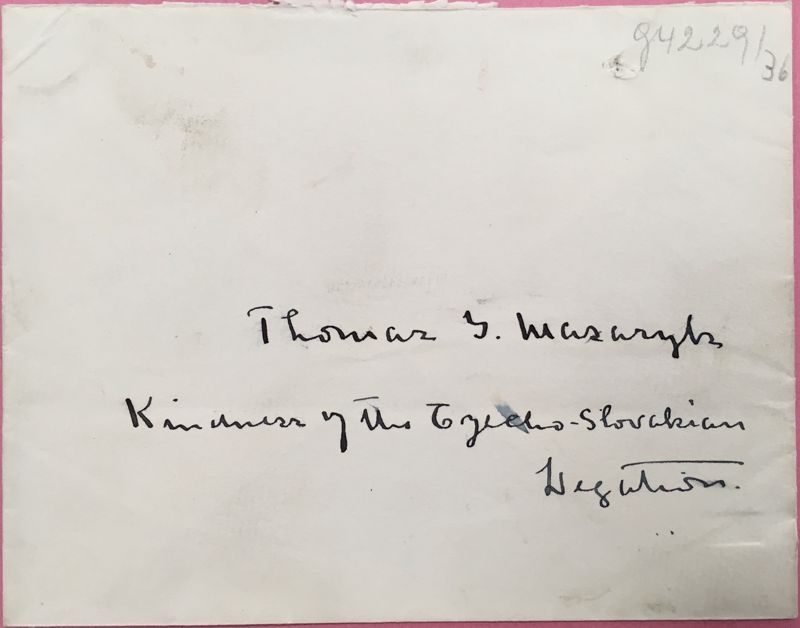 942291/36
Thomas G. Masaryk
Kindness of the Czecho-Slovakian
Legation.